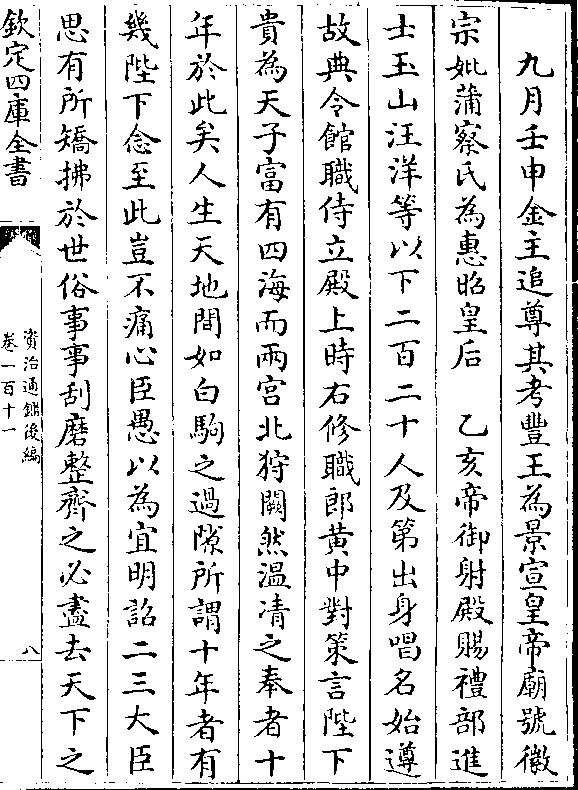 九月壬申金主追尊其考豐王為景宣皇帝廟號徽
宗妣蒲察氏為惠昭皇后　乙亥帝御射殿賜禮部進
士玉山汪洋等以下二百二十人及第出身唱名始遵
故典令館職侍立殿上時右修職郎黄中對策言陛下
貴為天子富有四海而兩宮北狩闕然温凊之奉者十
年於此矣人生天地間如白駒之過隙所謂十年者有
幾陛下念至此豈不痛心臣愚以為宜明詔二三大臣
思有所矯拂於世俗事事刮磨整齊之必盡去天下之
欽定四庫全書
資治通鑑後編
卷一百十一
八